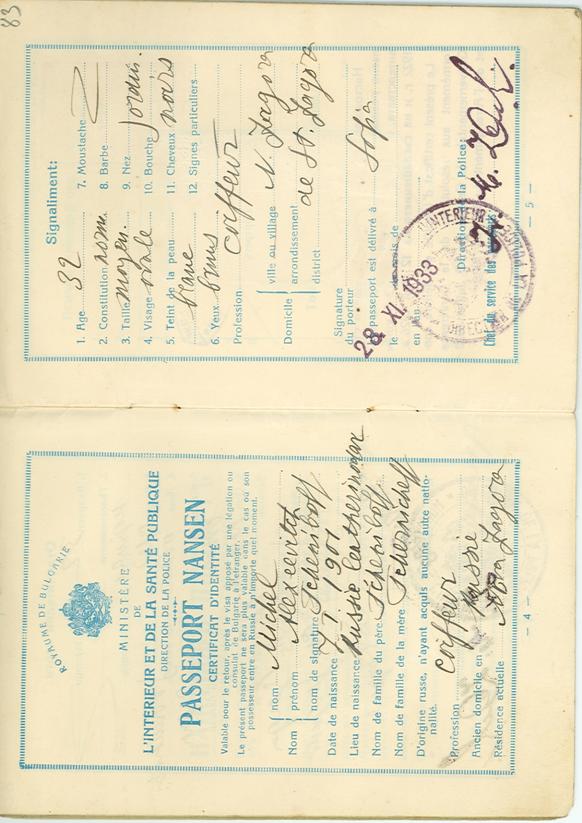 83
ROYAUME DE BULGARIE
MINISTÈRE
DE
L'INTERIEUR ET DE LA SANTÉ PUBLIQUE
DIRECTION DE LA POLICE
PASSEPORT NANSEN
CERTIFICAT D'IDENTITÉ
Valable pour le retour, après le visa apposé par une légation ou
consulat de Bulgarie à l'étranger.
Le présent passeport ne sera plus valable dans le cas où son
possesseur entre en Russie à n'importe quel moment.
Nom
nom Michel
prénom Alexeevitch
nom de signature
Date de naissance 7.I.1901
Lieu de naissance Russie Ecatherinodar
Nom de famille du père
Nom de famille de la mère
D'origine russe, n'ayant acquis aucune autre natio-
nalité.
Profession coiffeur
Ancien domicile en Russie
Résidence actuelle Zagora
— 4 —
Signaliment:
1. Age 32
2. Constitution norm.
3. Taille moyen.
4. Visage ovale
5. Teint de la peau
blanc
6. Yeux bruns
7. Moustache
8. Barbe
9. Nez
10. Bouche
11. Cheveux noirs
12. Signes particuliers
Profession coiffeur
Domicile
ville ou village N. Zagora
arrondissement
district de St. Zagora
Signature
du porteur
Passeport est délivré à Sofia
le 28 XI. 1933 mois de
en
Direction de la Police:
Chef du service des
L'INTERIEUR
— 5 —